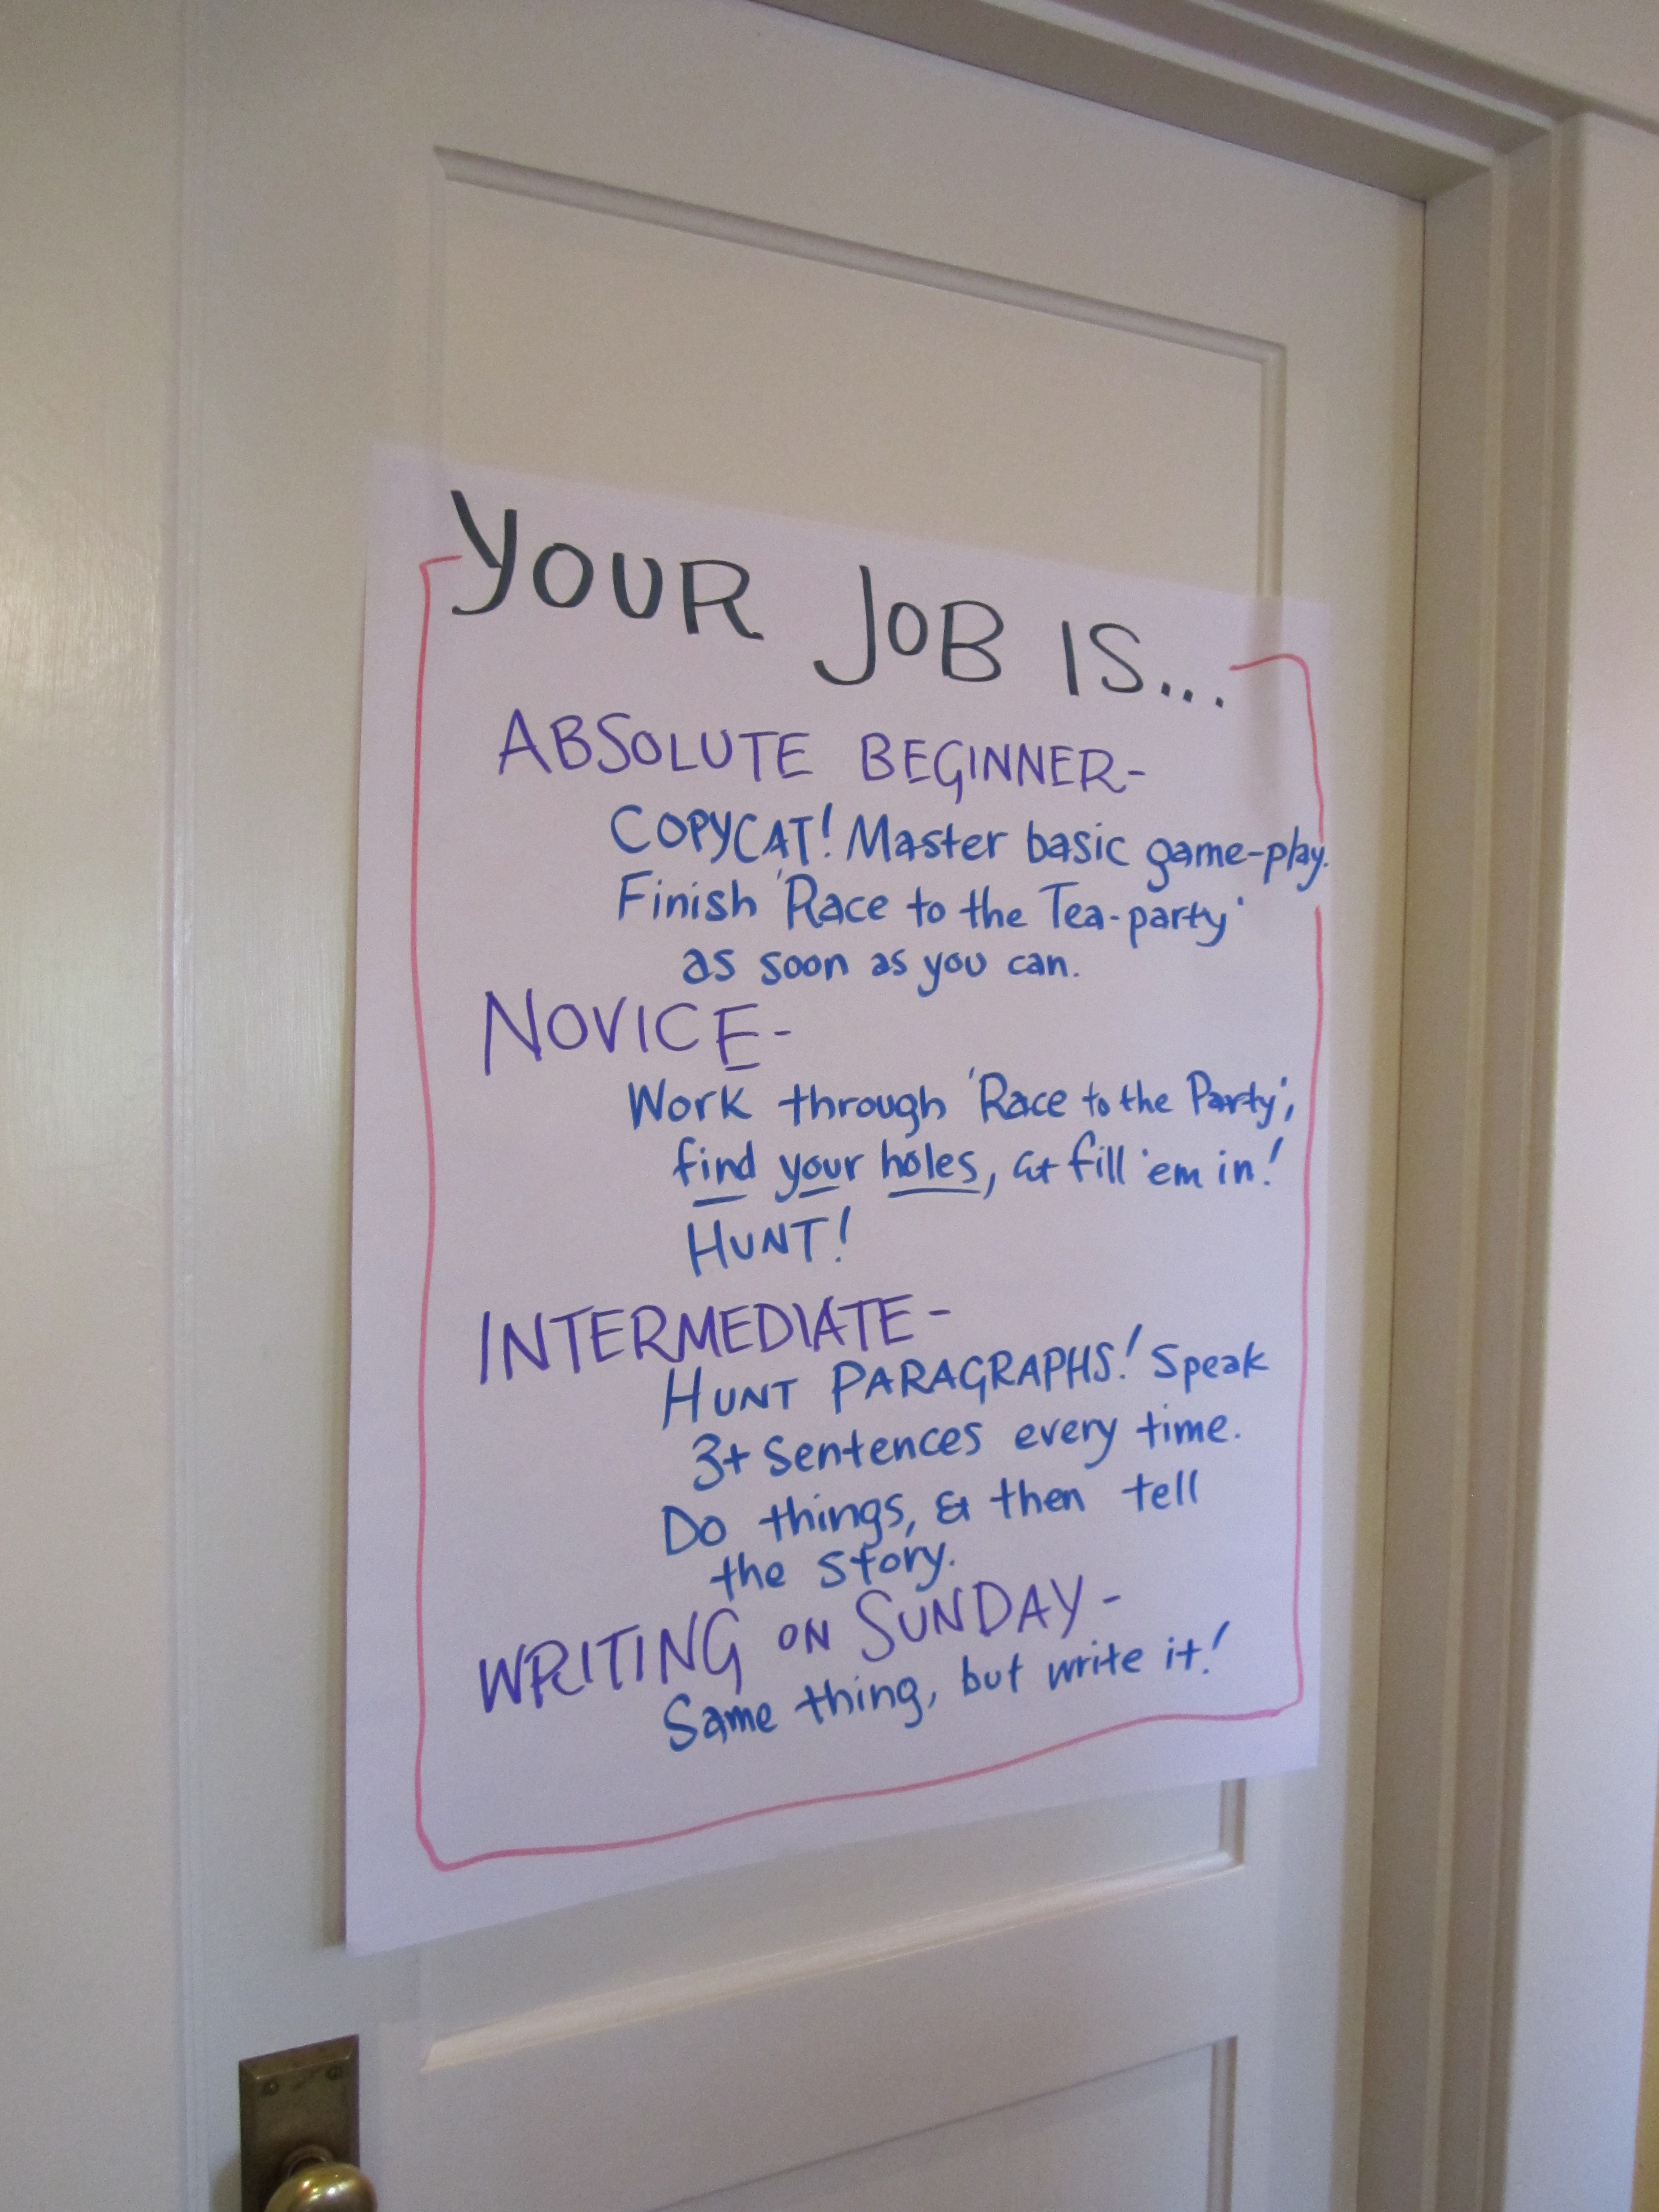 YOUR JOB IS...
ABSOLUTE BEGINNER-
COPYCAT! Master basic game-play.
Finish 'Race to the Tea-party'
as soon as you can.
NOVICE-
Work through 'Race to the Party',
find your holes, & fill 'em in!
HUNT!
INTERMEDIATE-
HUNT PARAGRAPHS! Speak
3+ sentences every time.
Do things, & then tell
the story.
WRITING ON SUNDAY-
Same thing, but write it!